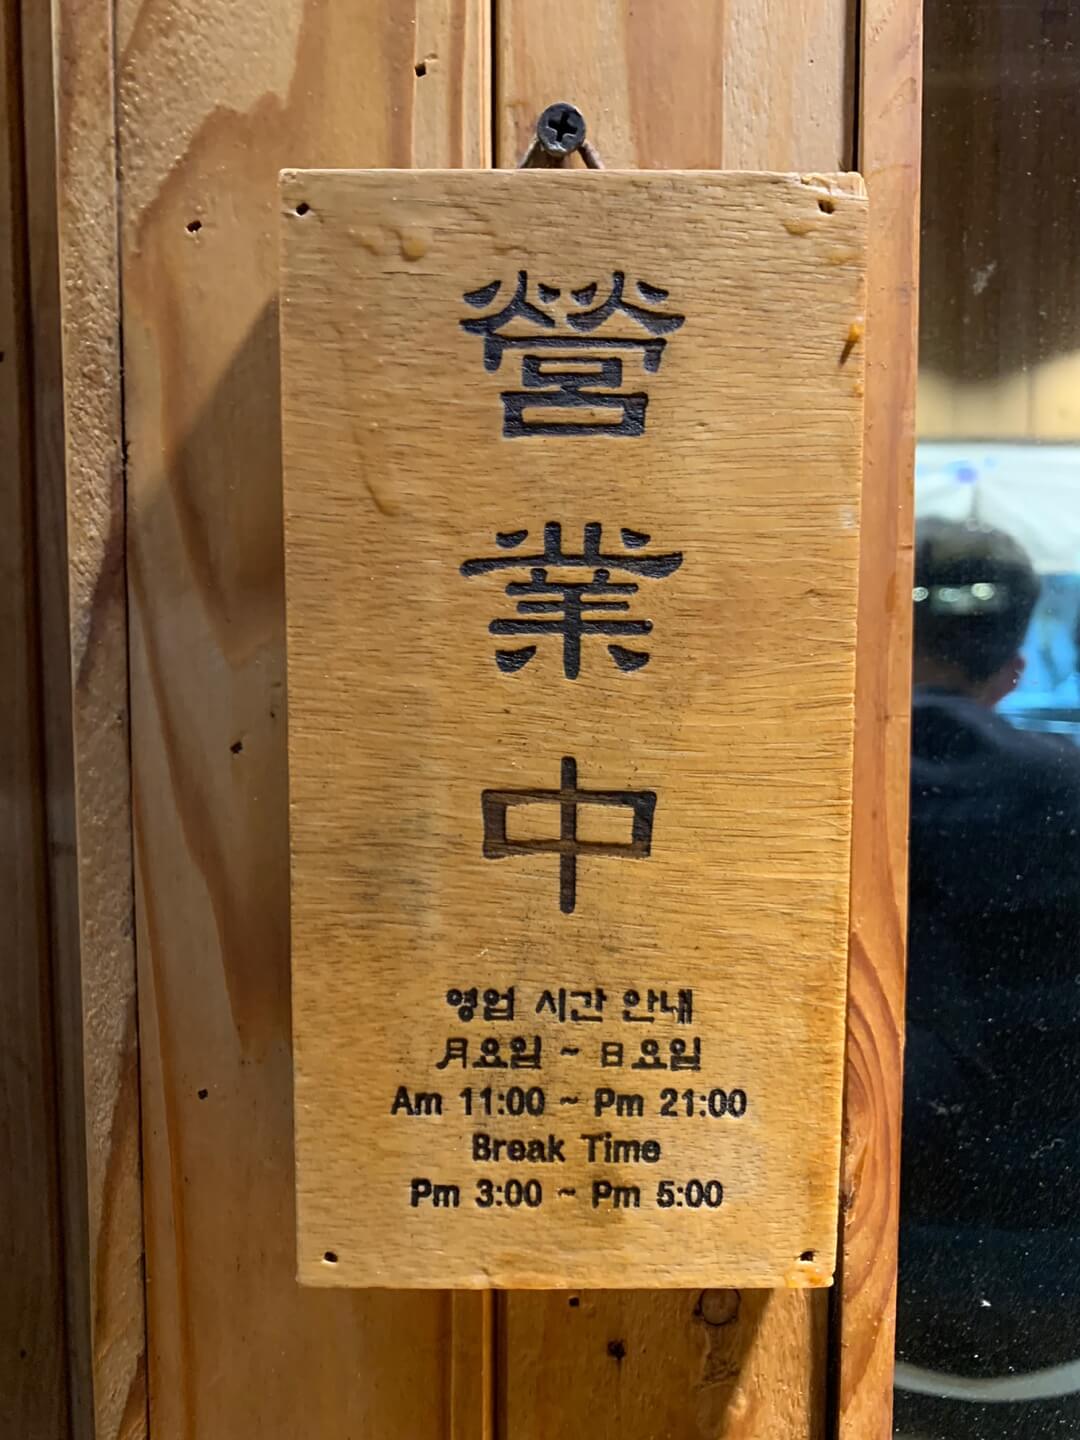 營
業
中
영업 시간 안내
月요일 ~ 日요일
Am 11:00 ~ Pm 21:00
Break Time
Pm 3:00 ~ Pm 5:00